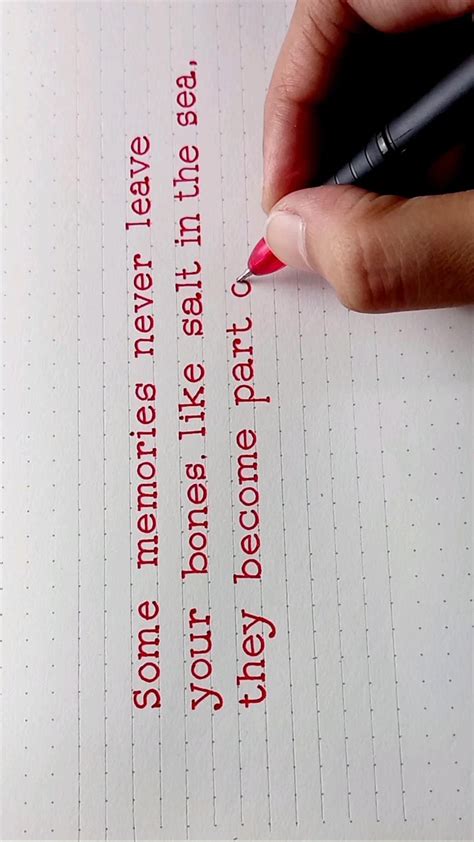 Some memories never leave
your bones, like salt in the sea,
they become part o